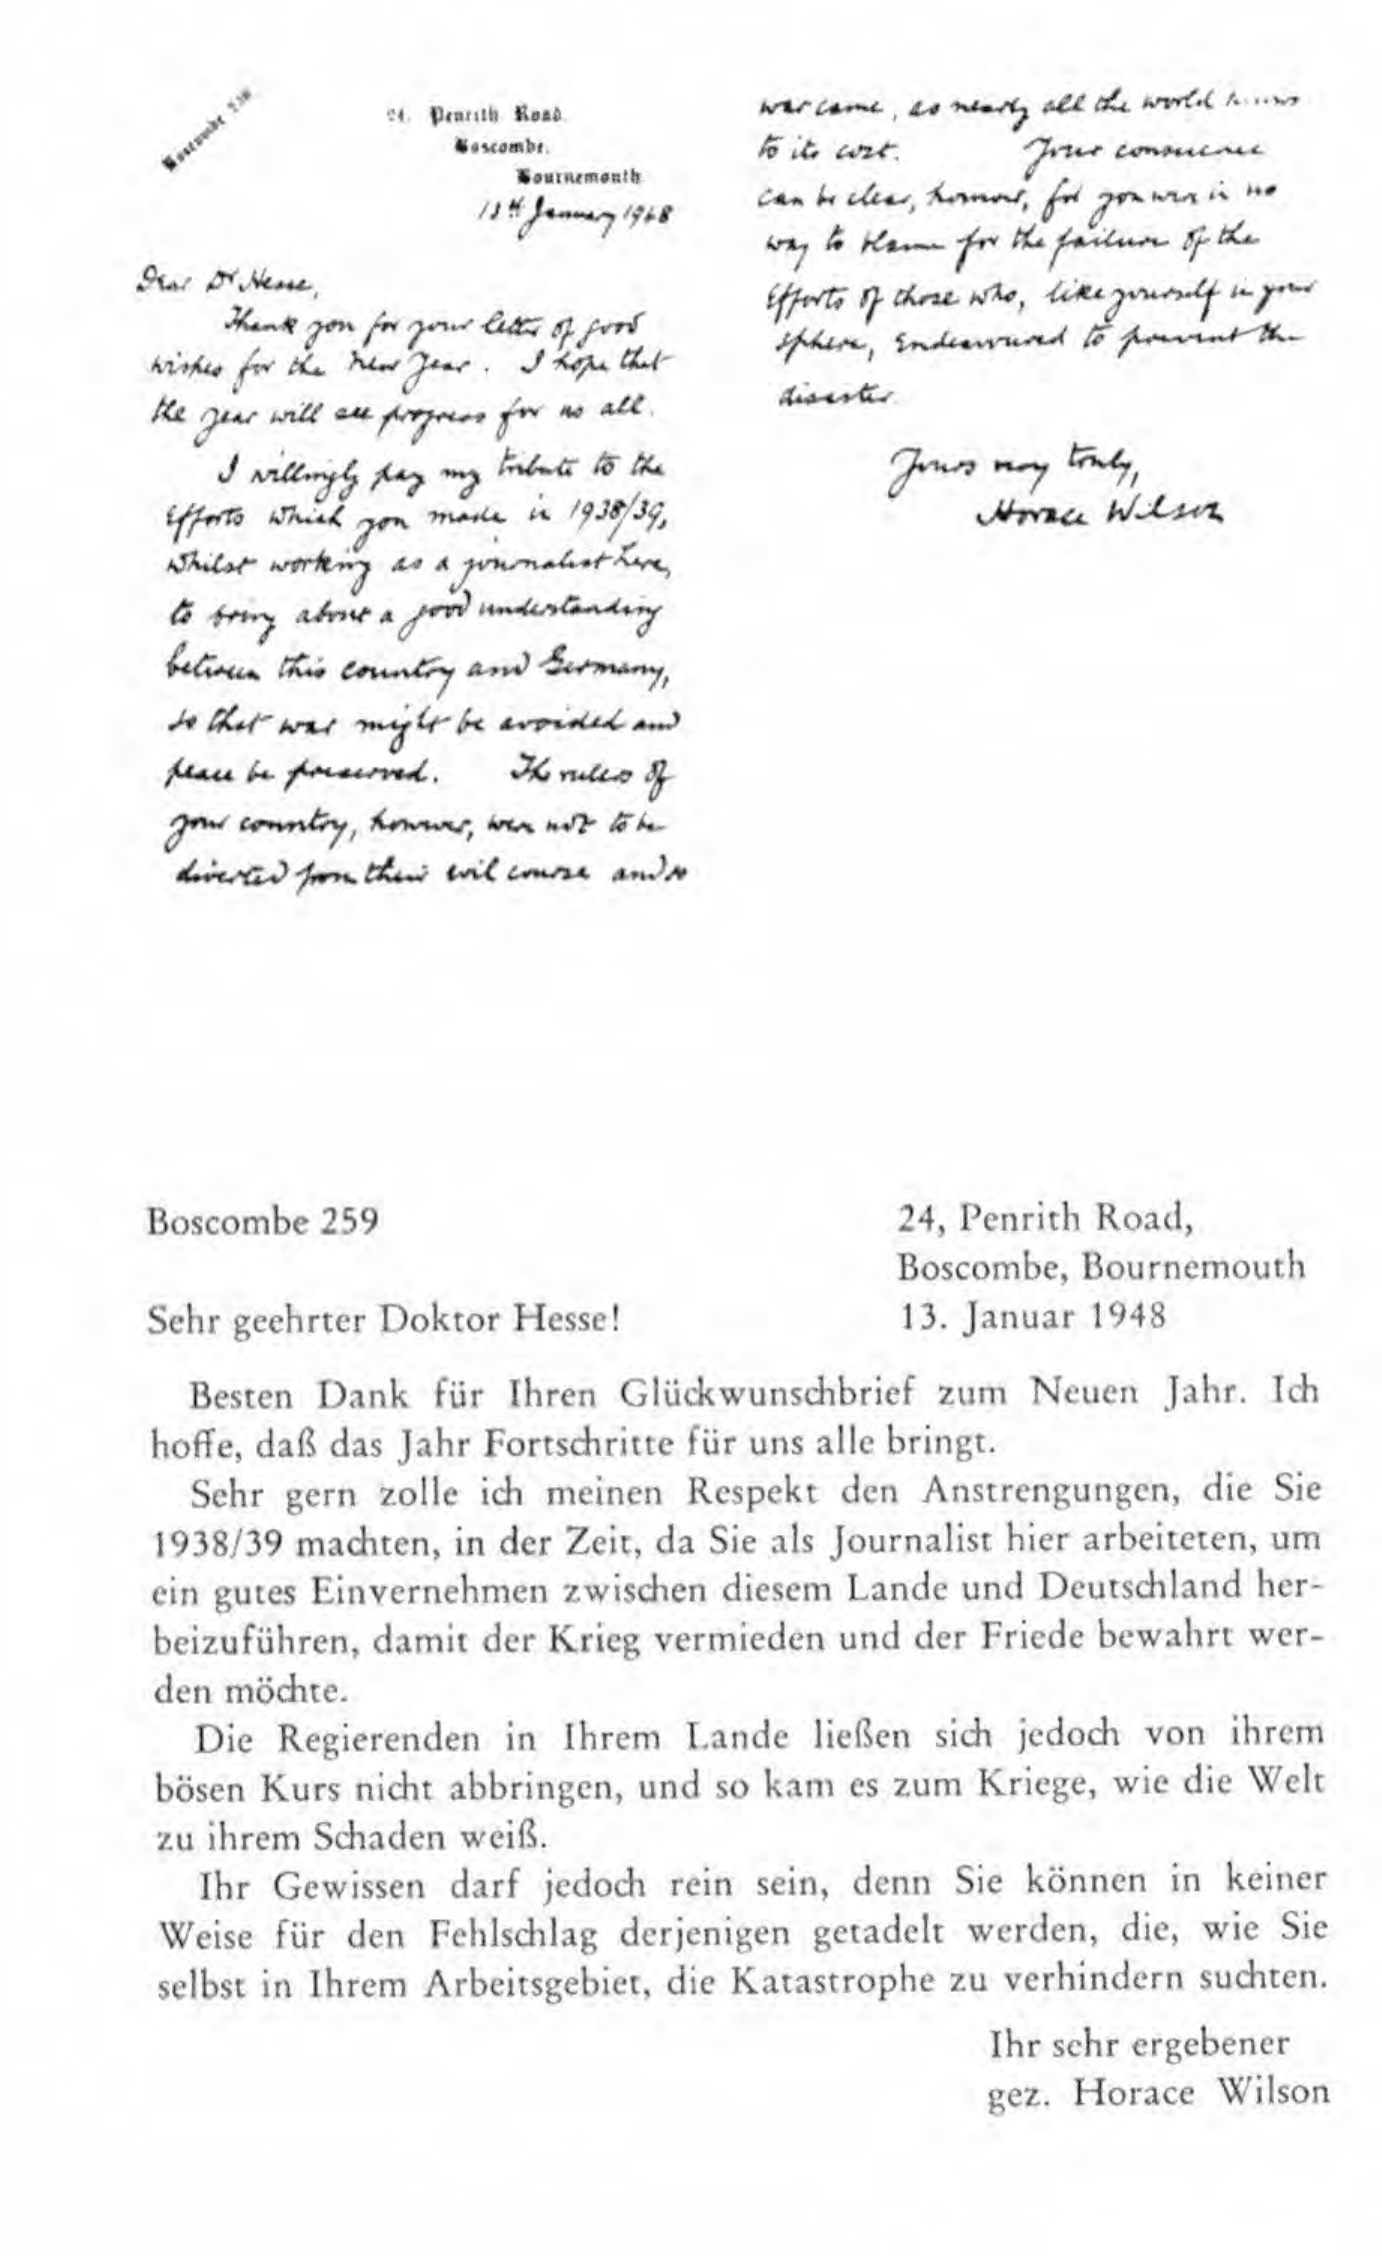 Boscombe
24, Penrith Road,
Boscombe,
Bournemouth
13th January 1948
Dear Dr Hesse,
Thank you for your letter of good
wishes for the New Year. I hope that
the year will see progress for us all.
I willingly pay my tribute to the
efforts which you made in 1938/39,
whilst working as a journalist here,
to bring about a good understanding
between this country and Germany,
so that war might be avoided and
peace be preserved. The rulers of
your country, however, were not to be
diverted from their evil course and so
war came, as nearly all the world knows
to its cost. Your conscience
can be clear, however, for you were in no
way to blame for the failure of the
efforts of those who, like yourself in your
sphere, endeavoured to prevent the
disaster.
Yours very truly,
Horace Wilson
Boscombe 259
24, Penrith Road,
Boscombe, Bournemouth
13. Januar 1948
Sehr geehrter Doktor Hesse!
Besten Dank für Ihren Glückwunschbrief zum Neuen Jahr. Ich
hoffe, daß das Jahr Fortschritte für uns alle bringt.
Sehr gern zolle ich meinen Respekt den Anstrengungen, die Sie
1938/39 machten, in der Zeit, da Sie als Journalist hier arbeiteten, um
ein gutes Einvernehmen zwischen diesem Lande und Deutschland her-
beizuführen, damit der Krieg vermieden und der Friede bewahrt wer-
den möchte.
Die Regierenden in Ihrem Lande ließen sich jedoch von ihrem
bösen Kurs nicht abbringen, und so kam es zum Kriege, wie die Welt
zu ihrem Schaden weiß.
Ihr Gewissen darf jedoch rein sein, denn Sie können in keiner
Weise für den Fehlschlag derjenigen getadelt werden, die, wie Sie
selbst in Ihrem Arbeitsgebiet, die Katastrophe zu verhindern suchten.
Ihr sehr ergebener
gez. Horace Wilson